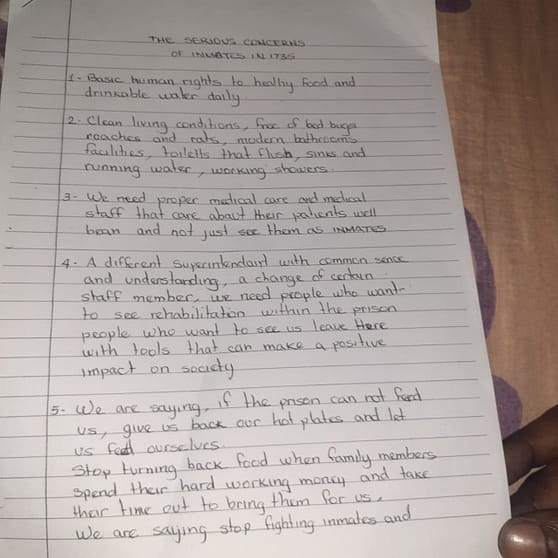 THE SERIOUS CONCERNS
OF INMATES IN 1735
1- Basic human rights to healthy food and
drinkable water daily
2- Clean living conditions, free of bed bugs
roaches and rats, modern bathrooms
facilities, toiletts that flush, sinks and
running water, working showers.
3- We need proper medical care and medical
staff that care about their patients well
bean and not just see them as INMATES
4. A different Superintendant with common sence
and understanding, a change of certain
staff member, we need people who want
to see rehabilitation within the prison
people who want to see us leave Here
with tools that can make a positive
impact on society
5- We are saying, if the prison can not feed
us, give us back our hot plates and let
us feed ourselves.
Stop turning back food when family members
spend their hard working money and take
their time out to bring them for us.
We are saying stop fighting inmates and